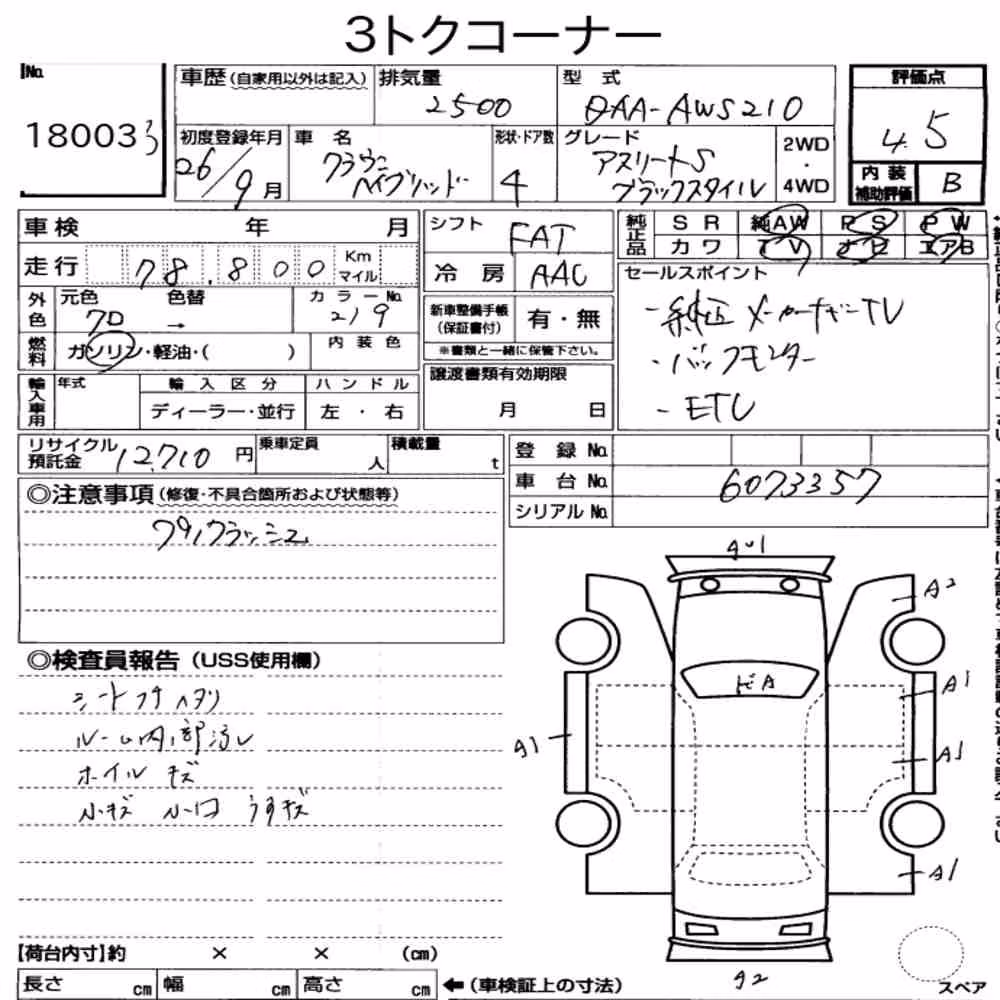 3トクコーナー
No.
18003
車歴 (自家用以外は記入)
排気量
2500
型 式
DAA-AWS210
評価点
4.5
初度登録年月
26/9月
車 名
クラウン
ハイブリッド
形状・ドア数
4
グレード
アスリートS
ブラックスタイル
2WD
・
4WD
内 装
補助評価
B
車 検 年 月
シフト
FAT
純正品
SR 純AW PS PW
カワ TV ナビ エアB
走 行
78,800
Km
マイル
冷 房
AAC
セールスポイント
- 純正メーカーナビーTV
・バックモニター
- ETC
外色
元色
クロ
色替
→
カラーNo.
219
新車整備手帳
(保証書付)
有・無
※書類と一緒に保管下さい。
燃料
ガソリン・軽油・( )
内 装 色
輸入車用
年式
輸 入 区 分
ディーラー・並行
ハ ン ド ル
左 ・ 右
譲渡書類有効期限
月 日
リサイクル
預託金
12,710 円
乗車定員
人
積載量
t
登 録 No.
車 台 No.
6073357
シリアル No.
◎注意事項 (修復・不具合箇所および状態等)
◎検査員報告 (USS使用欄)
シートコゲ ヘタリ
ルーム内、部汚レ
ホイル キズ
小キズ うすキズ
A2
A1
A1
A1
A1
【荷台内寸】約 × × (cm)
長さ cm 幅 cm 高さ cm
←(車検証上の寸法)
スペア